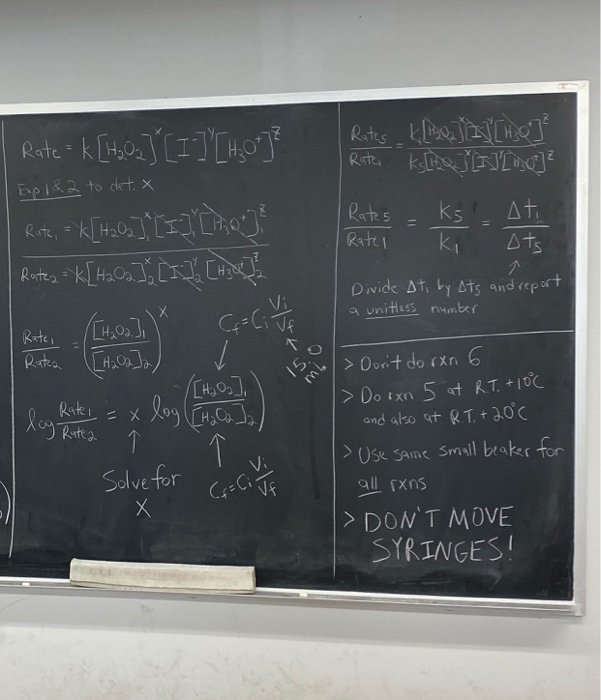 Rate = k[H₂O₂]ˣ[I⁻]ʸ[H₃O⁺]ᶻ
Exp 1 & 2 to det. x
Rate₁ = k[H₂O₂]₁ˣ[I⁻]₁ʸ[H₃O⁺]₁ᶻ
Rate₂ = k[H₂O₂]₂ˣ[I⁻]₂ʸ[H₃O⁺]₂ᶻ
Rate₁/Rate₂ = ([H₂O₂]₁/[H₂O₂]₂)ˣ
Cf = Ci Vi/Vf
15.0 mL
log Rate₁/Rate₂ = x log([H₂O₂]₁/[H₂O₂]₂)
Solve for
X
Cf = Ci Vi/Vf
Rate₅/Rate₁ = k[H₂O₂]ˣ[I⁻]ʸ[H₃O⁺]ᶻ/k[H₂O₂]ˣ[I⁻]ʸ[H₃O⁺]ᶻ
Rate 5/Rate 1 = K₅/K₁ = Δt₁/Δt₅
Divide Δt₁ by Δt₅ and report
a unitless number
> Don't do rxn 6
> Do rxn 5 at R.T. + 10°C
and also at R.T. + 20°C
> Use same small beaker for
all rxns
> DON'T MOVE
SYRINGES!